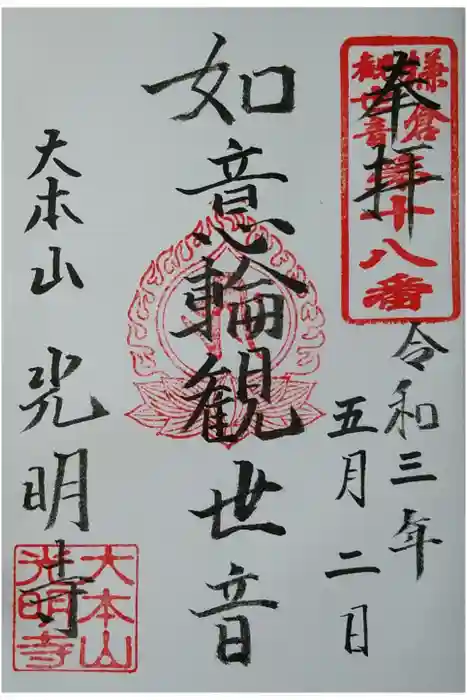 奉拝
鎌倉
観世音
第十八番
令和三年
五月二日
如意輪観世音
大本山 光明寺
大本山
光明寺